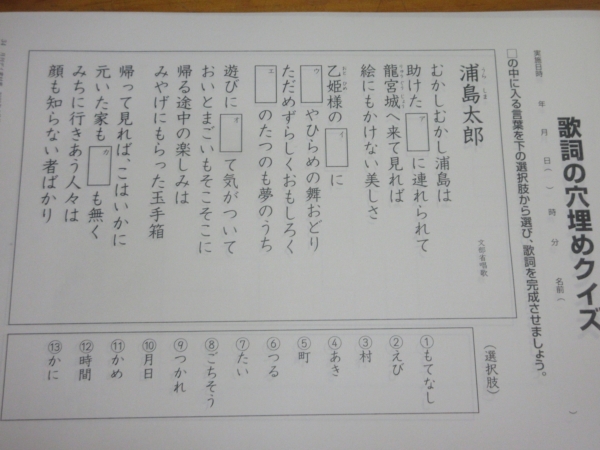 歌詞の穴埋めクイズ
実施日時 年 月 日( ) 時 分 名前( )
□の中に入る言葉を下の選択肢から選び、歌詞を完成させましょう。
浦島太郎
うら しま
文部省唱歌
むかしむかし浦島は
助けた ア に連れられて
龍宮城へ来て見れば
絵にもかけない美しさ
乙姫様の イ に
ウ やひらめの舞おどり
ただめずらしくおもしろく
エ のたつのも夢のうち
遊びに オ て気がついて
おいとまごいもそこそこに
帰る途中の楽しみは
みやげにもらった玉手箱
帰って見れば、こはいかに
元いた家も カ も無く
みちに行きあう人々は
顔も知らない者ばかり
(選択肢)
①もてなし
②えび
③村
④あき
⑤町
⑥つる
⑦たい
⑧ごちそう
⑨つかれ
⑩月日
⑪かめ
⑫時間
⑬かに